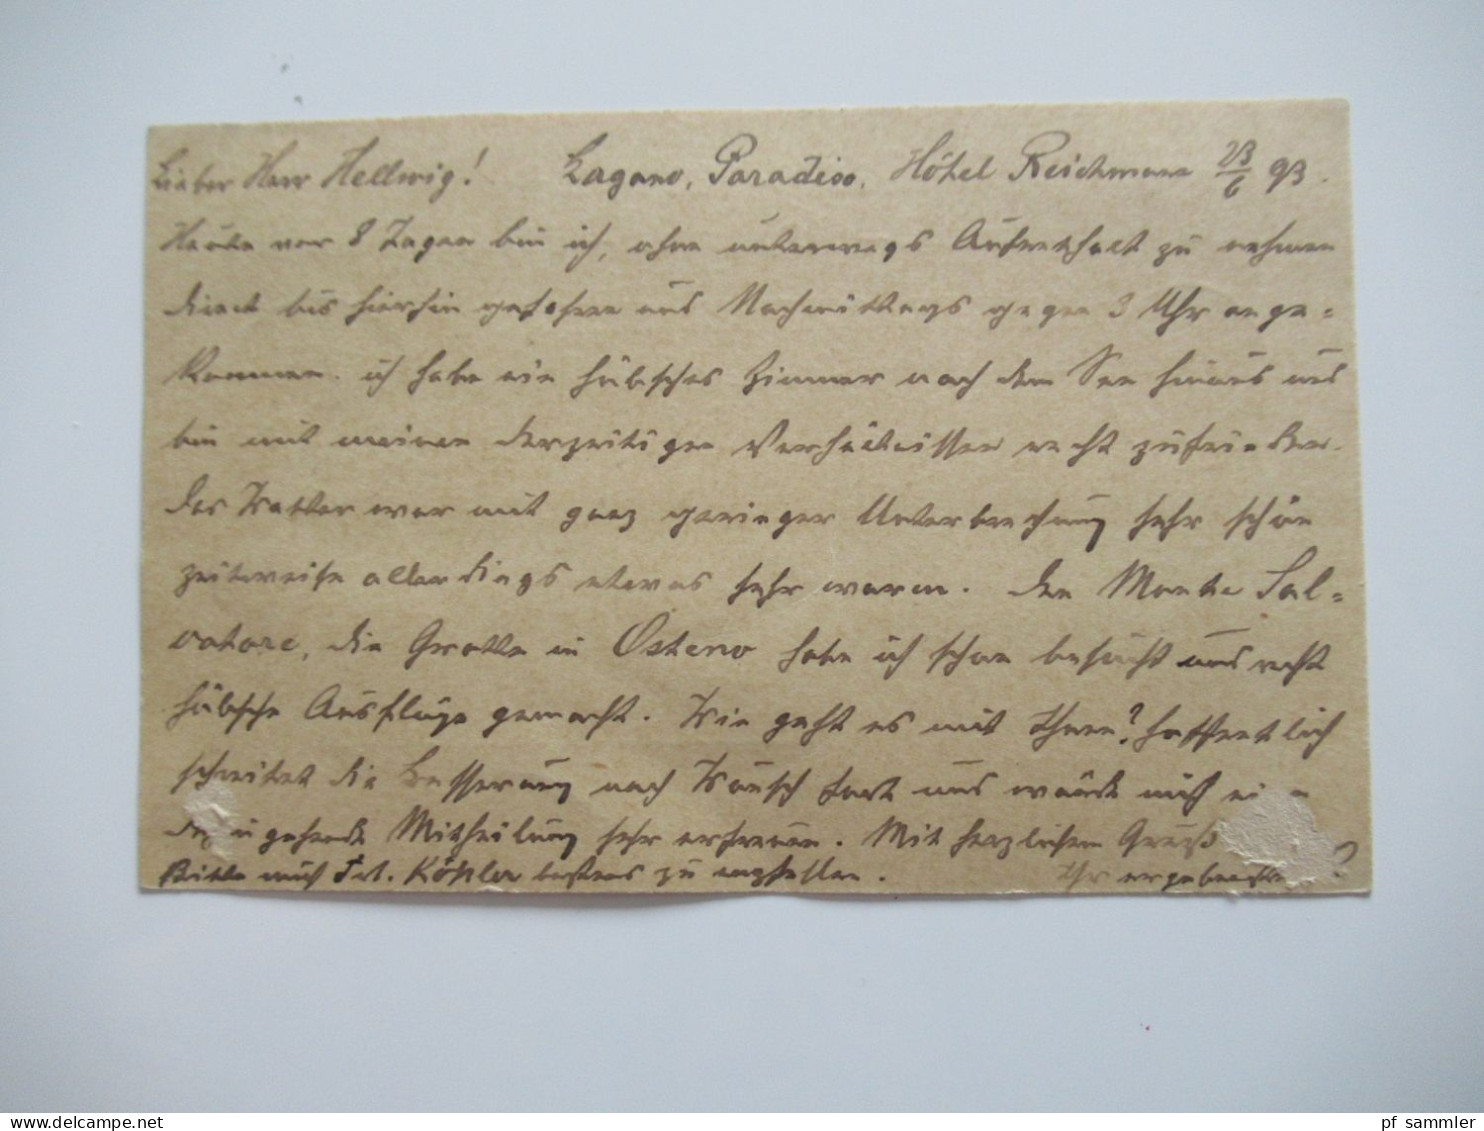 Lieber Herr Hellwig! Lugano, Paradiso. Hôtel Reichmann 23/6 93.
Heute vor 8 Tagen bin ich, ohne unterwegs Aufenthalt zu nehmen
direct bis hierhin gefahren und Nachmittags gegen 3 Uhr ange-
kommen. ich habe ein hübsches Zimmer nach dem See hinaus und
bin mit meinen derzeitigen Verhältnissen recht zufrieden.
das Wetter war mit ganz geringer Unterbrechung sehr schön
zeitweise allerdings etwas sehr warm. Den Monte Sal-
vatore, die Grotte in Osteno habe ich schon besucht und recht
hübsche Ausflüge gemacht. Wie geht es mit Ihnen? hoffentlich
schreitet die Besserung nach Wunsch fort und würde mich eine
dazugehende Mittheilung sehr erfreuen. Mit herzlichem Gruß
Bitte mich Frl. Köhler bestens zu empfehlen. Ihr ergebenster
pf sammler